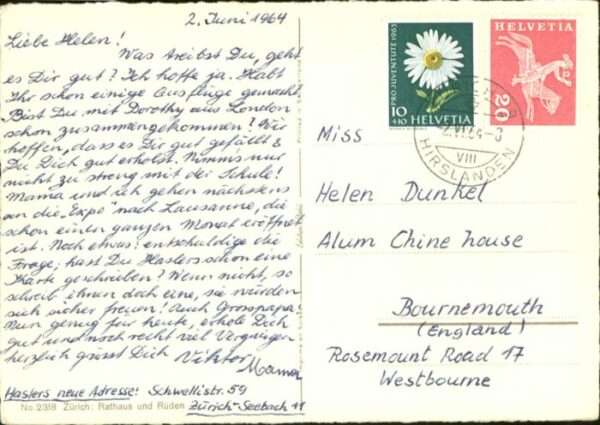 2. Juni 1964
Liebe Helen!
Was treibst Du, geht
es Dir gut? Ich hoffe ja. Habt
Ihr schon einige Ausflüge gemacht
Bist Du mit Dorothy aus London
schon zusammengekommen? Wir
hoffen, dass es Dir gut gefällt &
Du Dich gut erholst. Nimms nur
nicht zu streng mit der Schule!
Mama und ich gehen nächstens
an die „Expo" nach Lausanne, die
schon einen ganzen Monat eröffnet
ist. Noch etwas: entschuldige die
Frage; hast Du Haslers schon eine
Karte geschrieben? Wenn nicht, so
schreib ihnen doch eine, sie würden
sich sicher freuen! Auch Grosspapa!
Nun genug für heute, erhole Dich
gut und noch recht viel Vergnügen
herzlich grüsst Dich Viktor
Mama
Haslers neue Adresse: Schwellistr. 59
Zürich-Seebach 11
No. 2318 Zürich: Rathaus und Rüden
PRO JUVENTUTE 1963
10
+10
HELVETIA
HELVETIA
20
VIII
HIRSLANDEN
Miss
Helen Dunkel
Alum Chine house
Bournemouth
(England)
Rosemount Road 17
Westbourne